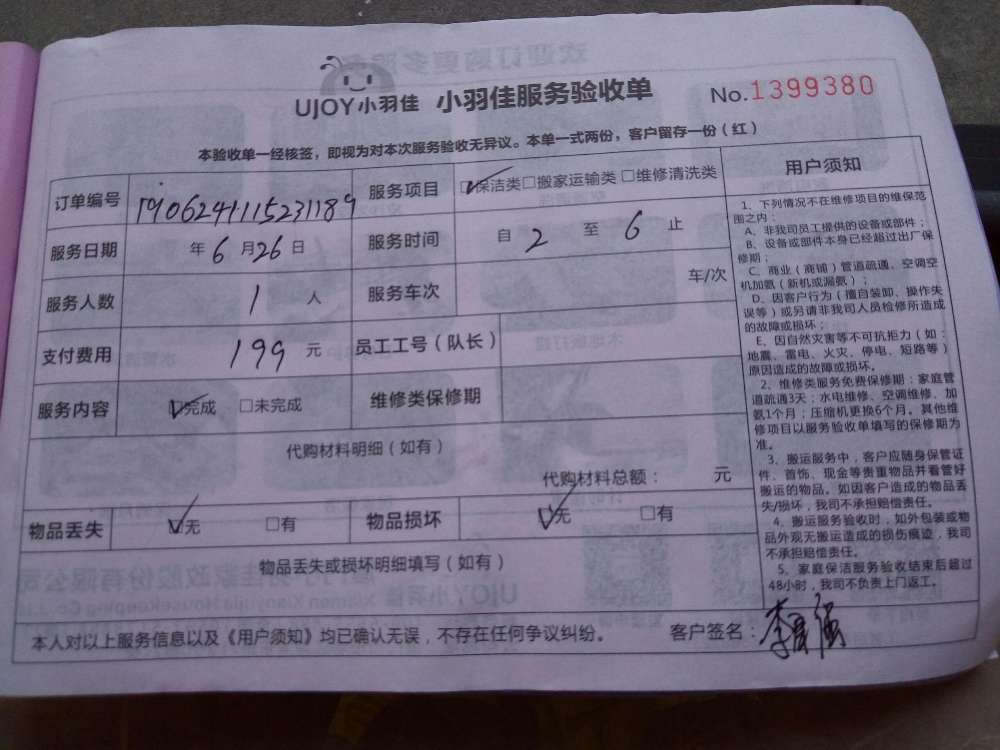 UJOY小羽佳 小羽佳服务验收单 No.1399380
本验收单一经核签，即视为对本次服务验收无异议。本单一式两份，客户留存一份（红）
订单编号 1906241115231189 服务项目 ☑保洁类□搬家运输类□维修清洗类
服务日期 年6月26日 服务时间 自 2 至 6 止
服务人数 1 人 服务车次 车/次
支付费用 199 元 员工工号（队长）
服务内容 ☑完成 □未完成 维修类保修期
代购材料明细（如有）
代购材料总额： 元
物品丢失 ☑无 □有 物品损坏 ☑无 □有
物品丢失或损坏明细填写（如有）
本人对以上服务信息以及《用户须知》均已确认无误，不存在任何争议纠纷。 客户签名：
用户须知
1、下列情况不在维修项目的维保范
围之内：
A、非我司员工提供的设备或部件；
B、设备或部件本身已经超过出厂保
修期；
C、商业（商铺）管道疏通、空调空
机加氨（新机或漏氨）；
D、因客户行为（擅自装卸、操作失
误等）或另请非我司人员检修所造成
的故障或损坏；
E、因自然灾害等不可抗拒力（如：
地震、雷电、火灾、停电、短路等）
原因造成的故障或损坏。
2、维修类服务免费保修期：家庭管
道疏通3天；水电维修、空调维修、加
氨1个月；压缩机更换6个月。其他维
修项目以服务验收单填写的保修期为
准。
3、搬运服务中，客户应随身保管证
件、首饰、现金等贵重物品并看管好
搬运的物品。如因客户造成的物品丢
失/损坏，我司不承担赔偿责任。
4、搬运服务验收时，如外包装或物
品外观无搬运造成的损伤痕迹，我司
不承担赔偿责任。
5、家庭保洁服务验收结束后超过
48小时，我司不负责上门返工。